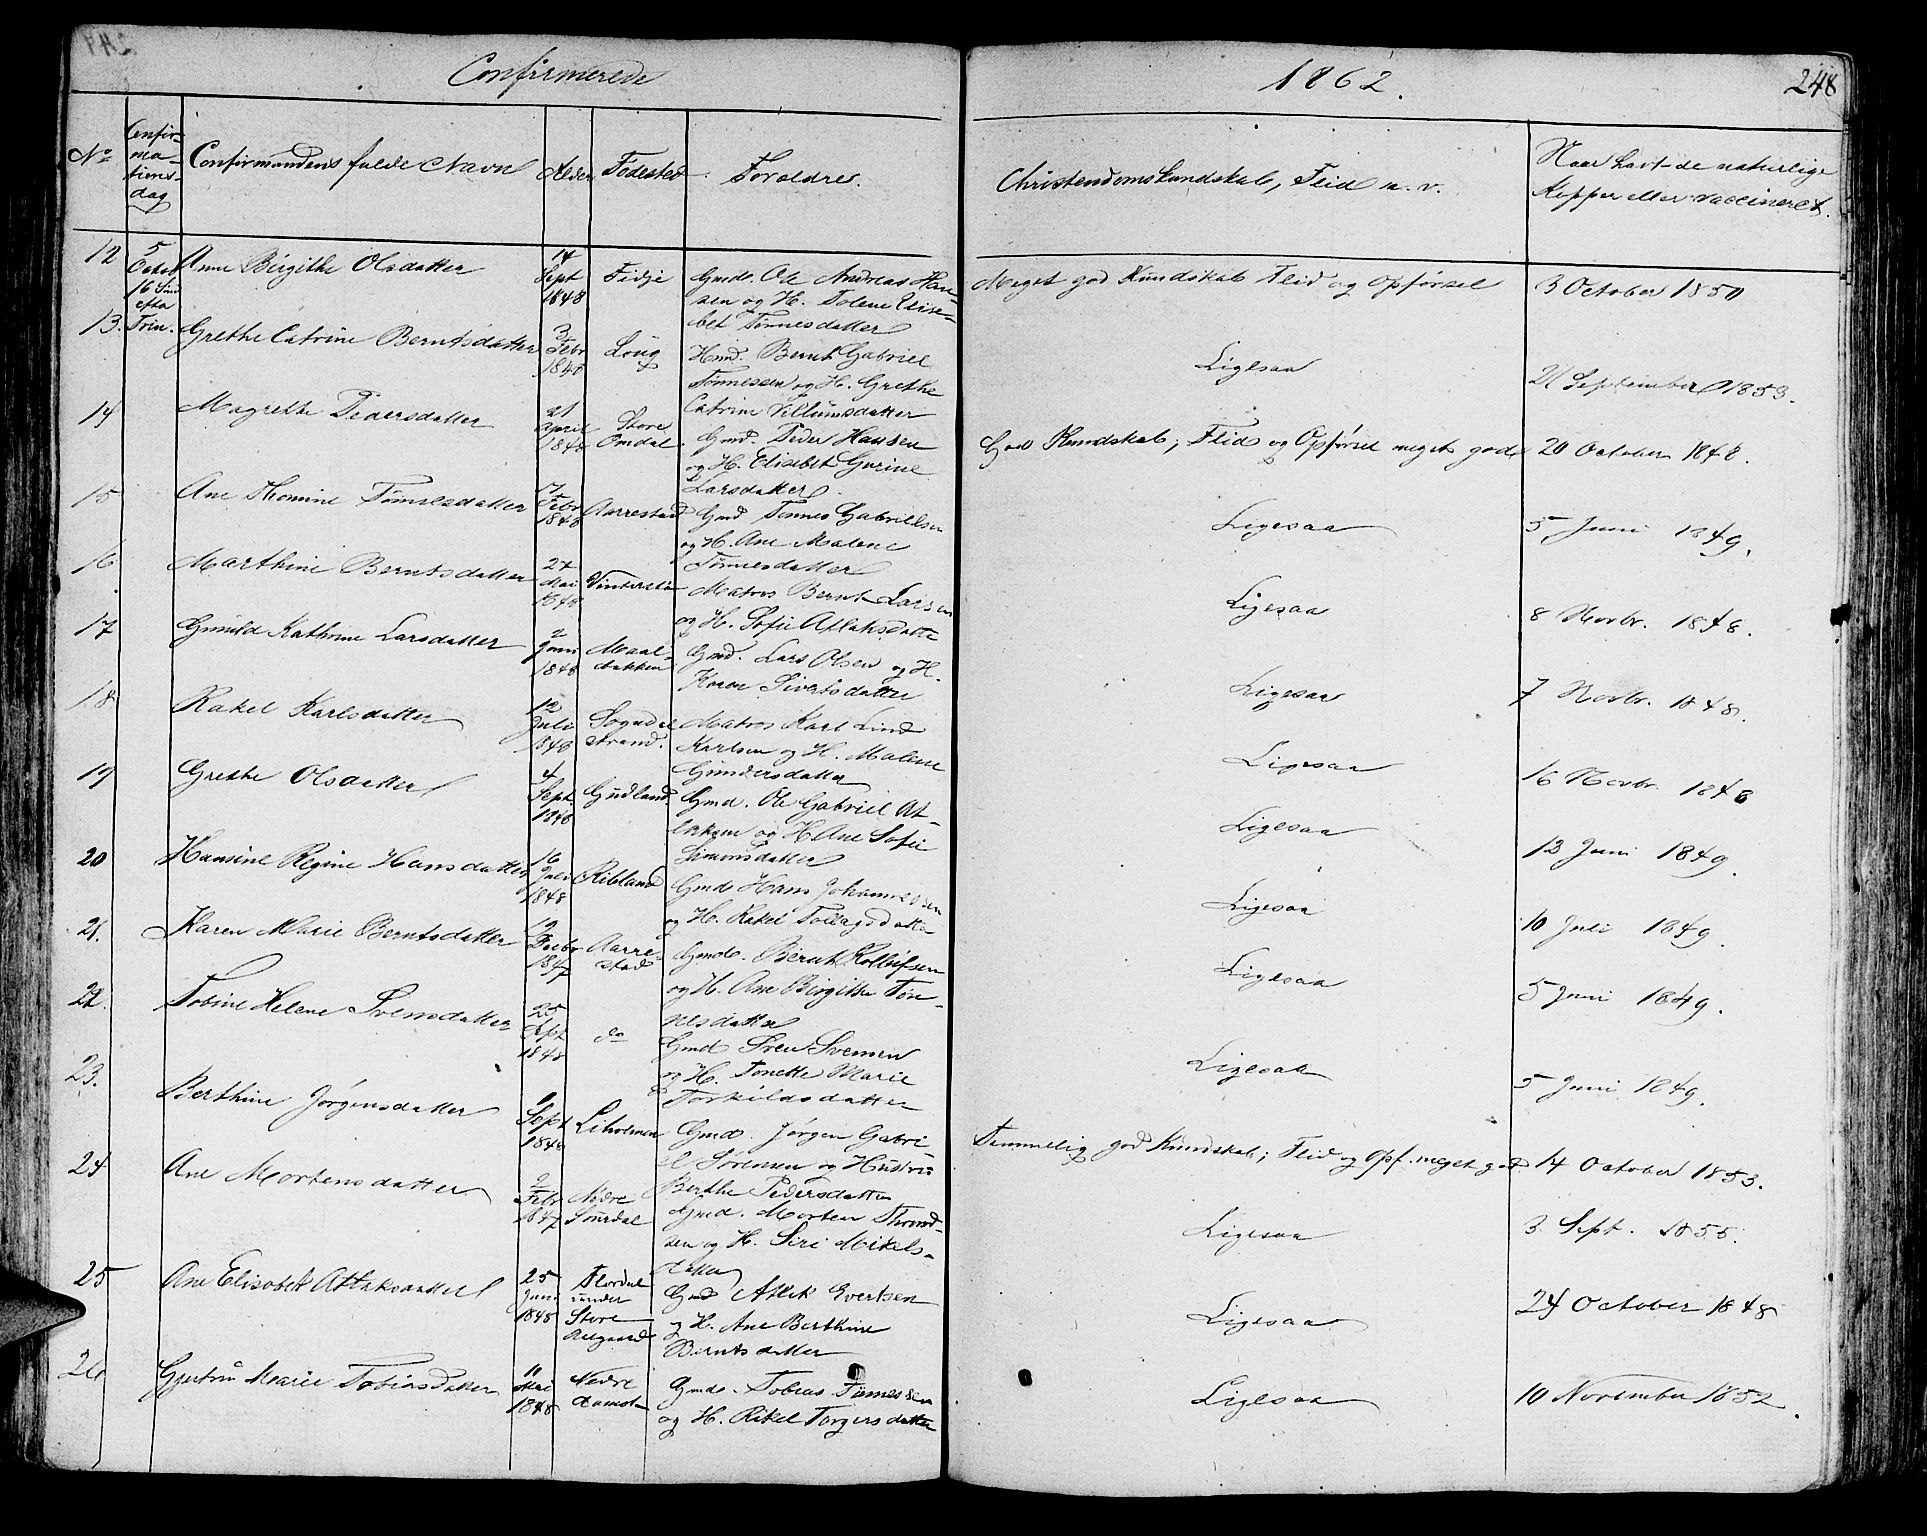 Confirmerede
1862.
248
No
Confir-
ma-
tions-
dag
Confirmandens fulde Navn
Alder
Fødested.
Forældre.
Christendomskundskab, Flid n. v.
Naar havt de naturlige
Kopper eller vaccineret.
12
5
Octob
16 Sønd
efter
Trin.
Anne Birgithe Olsdatter
14
Sept
1848
Fidje
Gmd. Ole Andreas Han-
sen og H. Tolene Elise-
bet Tønnesdatter
Meget god Kundskab Flid og Opførsel
3 October 1850
13.
Grethe Catrine Berntsdatter
3
Febr
1848
Loug
Hmd. Bernt Gabriel
Tønnessen og H. Grethe
Catrine Villumsdatter
Ligesaa
21 September 1853.
14
Magrethe Pedersdatter
21
April
1848
Store
Omdal.
Gmd. Peder Hansen
og H. Elisabet Gurine
Larsdatter
God Kundskab, Flid og Opførsel meget god
20 October 1848.
15
Ane Thomine Tønnesdatter
7
Febr
1848
Aarrestad
Gmd Tønnes Gabrielsen
og H. Ane Malene
Tønnesdatter
Ligesaa
5 Juni 1849.
16
Marthine Berntsdatter
27
Mai
1848
Matros Bernt Larsen
og H. Sofie Atlaksdatte
Ligesaa
8 Novbr. 1848.
17
Gunild Kathrine Larsdatter
2
Juni
1848
Maal-
bakken
Gmd. Lars Olsen og H.
Karen Sivertsdatter
Ligesaa
7 Novbr. 1848.
18
Rakel Karlsdatter
12
Juli
1848
Sogndal
strand.
Matros Karl Lind
Karlsen og H. Malene
Gundersdatter
Ligesaa
16 Novbr. 1848
19
Grethe Olsdatter
4
Sept
1848
Gudland
Gmd. Ole Gabriel At-
laksen og H Ane Sofie
Simonsdatter
Ligesaa
12 Juni 1849.
20
Hansine Regine Hansdatter
16
Juli
1848
Ribland
Gmd Hans Johannessen
og H. Rakel Tollagsdatte
Ligesaa
10 Juli 1849.
21.
Karen Marie Berntsdatter
19
Febr
1847
Aarre-
stad
Gmd. Bernt Rolleifsen
og H. Ane Birgitte Tøn-
nesdatter
Ligesaa
5 Juni 1849.
22.
Tobine Helene Svensdatter
25
Sept
1848
do
Gmd Sven Svensen
og H. Tonette Marie
Torkildsdatter
Ligesaa
5 Juni 1849.
23.
Berthine Jørgensdatter
9
Sept
1848
Liholmen
Gmd. Jørgen Gabri-
el Sørensen og Hustru
Berthe Pedersdatter
Temmelig god Kundskab; Flid og Opf. meget god
14 October 1853.
24
Ane Mortensdatter
2
Febr
1847
Nedre
Suurdal
Gmd. Morten Thord-
sen og H. Siri Mikels-
datter
Ligesaa
3 Sept. 1855.
25
Ane Elisabet Atlaksdatter
25
Juni
1848
Flordal
under
Store
Aagaard
Gmd Atlak Evertsen
og H. Ane Berthine
Berntsdatter
Ligesaa
24 October 1848
26
Gjertrù Marie Tobiasdatter
11
Mai
1848
Nedre
Gmd. Tobias Tønnessen
og H. Rikel Torgersdatter
Ligesaa
10 November 1852.